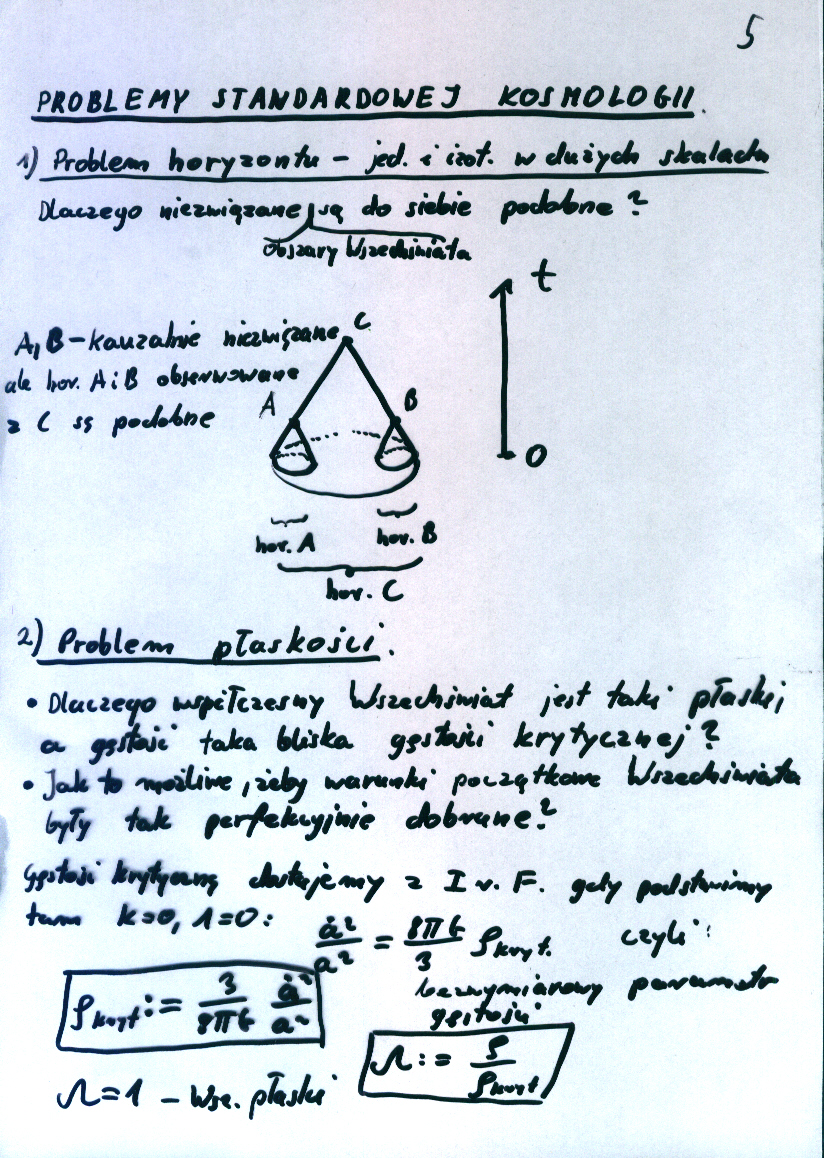 5
PROBLEMY STANDARDOWEJ KOSMOLOGII.
1) Problem horyzontu – jed. i izot. w dużych skalach
Dlaczego niezwiązane są do siebie podobne?
obszary Wszechświata
t
A, B – kauzalnie niezwiązane
C
ale hor. A i B obserwowane
z C są podobne
A
B
0
hor. A
hor. B
hor. C
2) Problem płaskości.
• Dlaczego współczesny Wszechświat jest taki płaski,
a gęstość taka bliska gęstości krytycznej?
• Jak to możliwe, żeby warunki początkowe Wszechświata
były tak perfekcyjnie dobrane?
Gęstość krytyczną dostajemy z I r. F. gdy podstawimy
tam k=0, Λ=0:
ȧ²/a² = 8πG/3 ρkryt. czyli:
ρkryt := 3/8πG ȧ²/a²
bezwymiarowy parametr
gęstości
Ω := ρ/ρkryt
Ω = 1 – Wsz. płaski